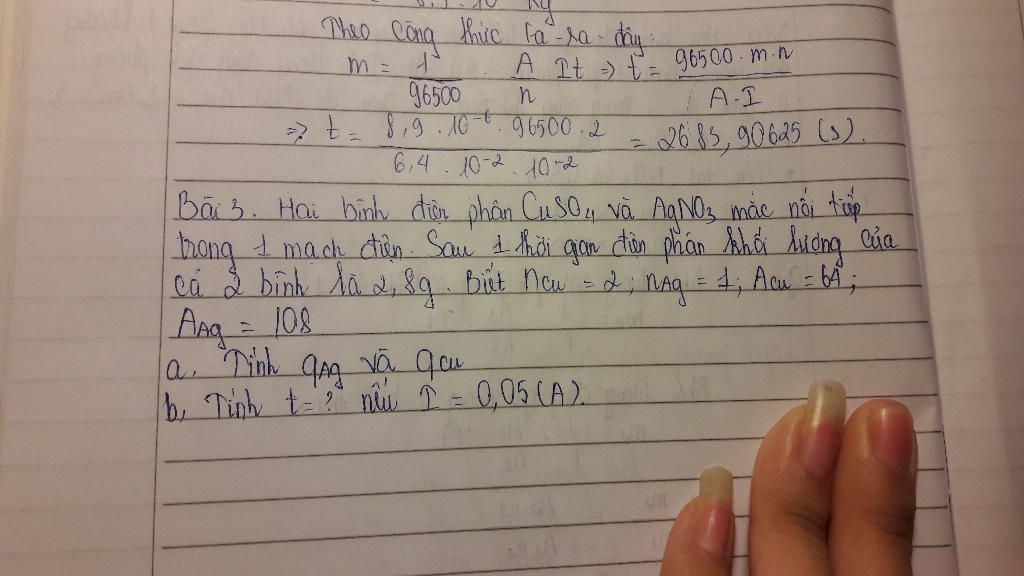 Theo công thức Fa-ra-đây:
m = 1/96500 . A/n It => t = 96500 . m . n / A . I
=> t = 8,9 . 10⁻⁶ . 96500 . 2 / 6,4 . 10⁻² . 10⁻² = 2683,90625 (s).
Bài 3. Hai bình điện phân CuSO₄ và AgNO₃ mắc nối tiếp
trong 1 mạch điện. Sau 1 thời gan điện phân khối lượng của
cả 2 bình là 2,8g. Biết nCu = 2; nAg = 1; ACu = 64;
AAg = 108
a. Tính qAg và qCu
b, Tính t = ? nếu I = 0,05 (A).